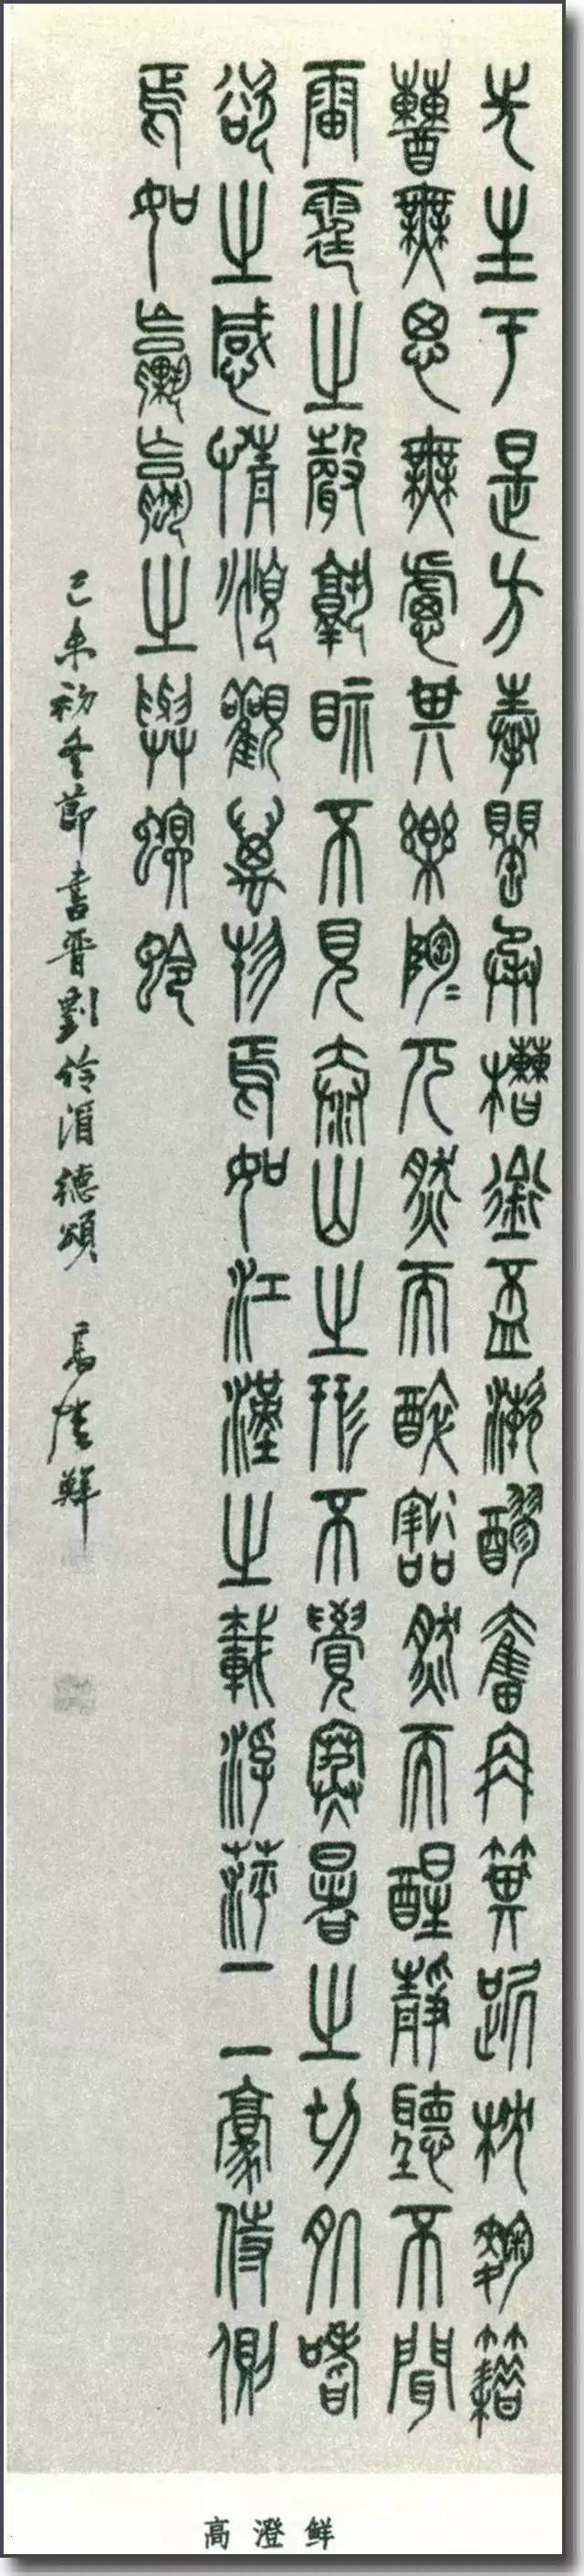 先生于是方奉罌承槽銜盃漱醪奮冄箕踞枕麴籍
糟無思無慮其樂陶〻兀然而醉豁然而醒靜聽不聞
雷霆之聲孰眎不見泰山之形不覺寒暑之切肌嗜
欲之感情俯觀萬物焉如江漢之載浮萍二豪侍側
焉如蜾蠃之與螟蛉
己未初冬節書晉劉伶酒德頌 高澄鮮
高澄鲜